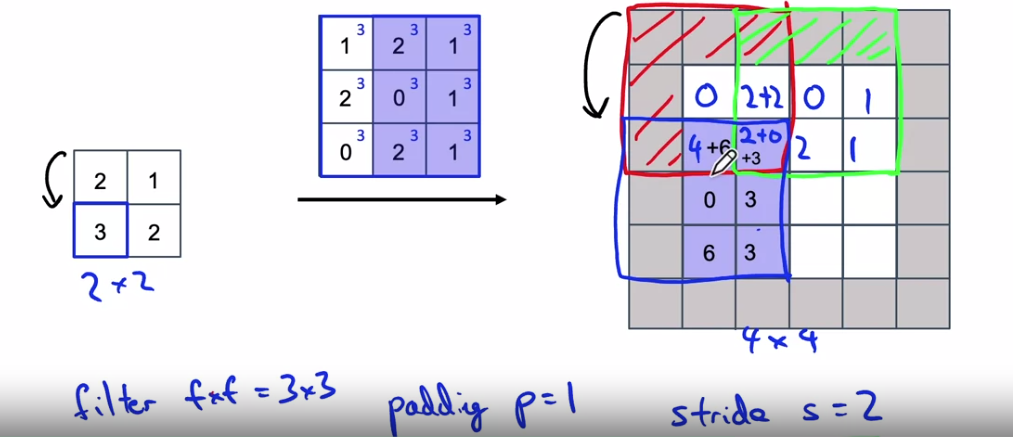 1³ 2³ 1³
2³ 0³ 1³
0³ 2³ 1³
2 1
3 2
2 × 2
0 2+2 0 1
4 +6 2+0 +3 2 1
0 3
6 3
4 × 4
filter f×f = 3×3
paddig p=1
stride s = 2